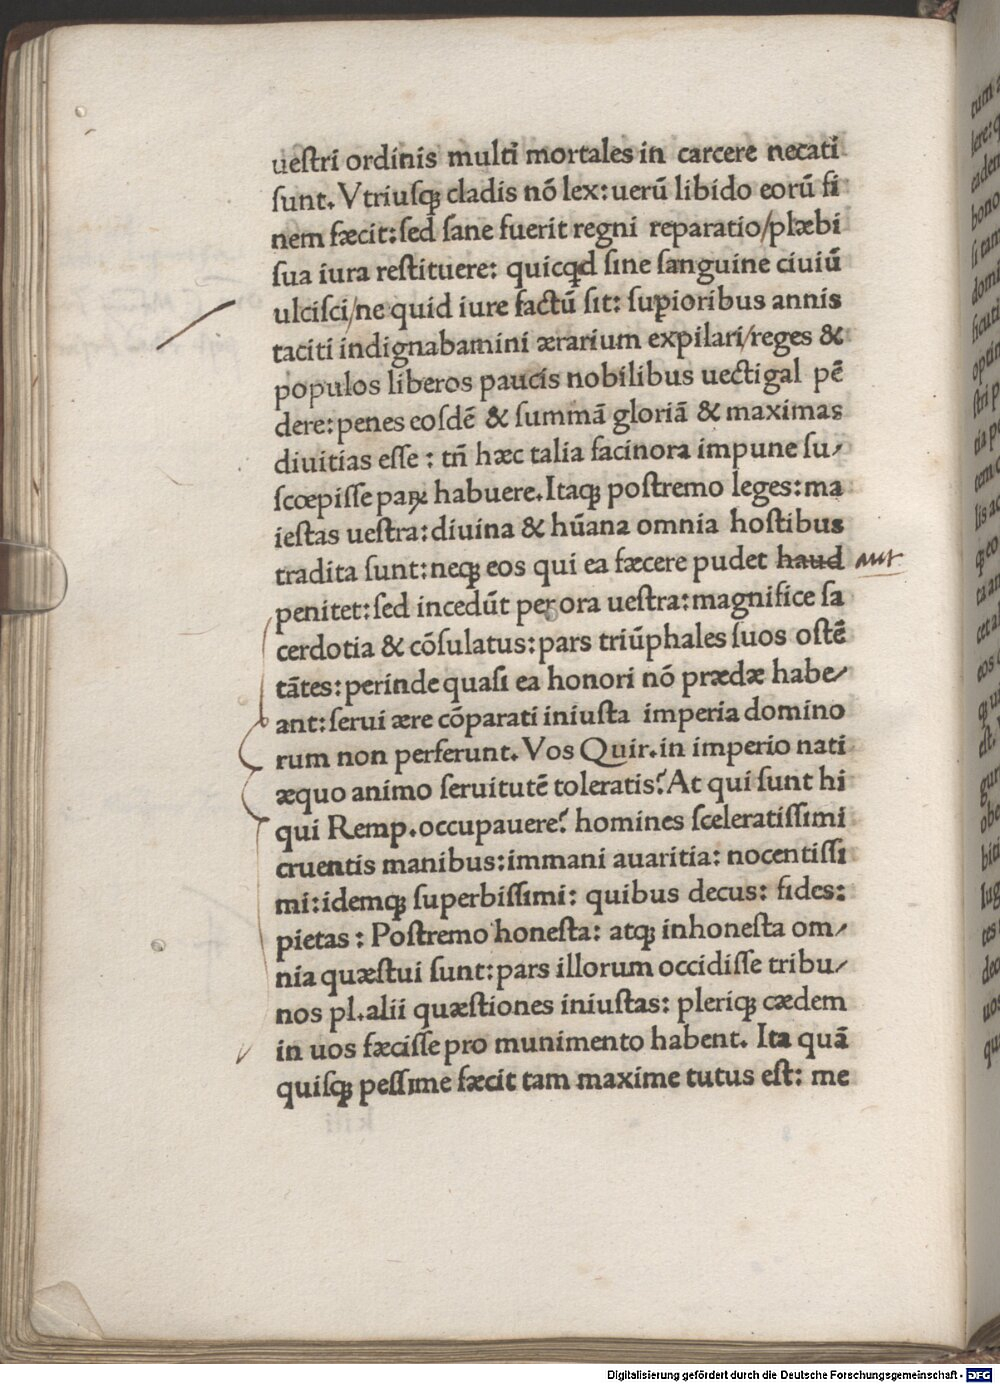 ueſtri ordinis multi mortales in carcere necati
ſunt. Vtriuſqꝫ cladis nō lex: uerū libido eorū fi
nem fæcit: ſed ſane fuerit regni reparatio/plæbi
ſua iura reſtituere: quicqd ſine ſanguine ciuiū
ulciſci/ne quid iure factū ſit: ſuꝑioribus annis
taciti indignabamini ærarium expilari/reges &
populos liberos paucis nobilibus uectigal pē
dere: penes eoſdē & ſummā gloriā & maximas
diuitias eſſe : tn̄ hæc talia facinora impune ſu/
ſcœpiſſe paꝝ habuere. Itaqꝫ poſtremo leges: ma
ieſtas ueſtra: diuina & hūana omnia hoſtibus
tradita ſunt: neqꝫ eos qui ea fæcere pudet haud aut
penitet: ſed incedūt per ora ueſtra: magnifice ſa
cerdotia & cōſulatus: pars triūphales ſuos oſtē
tātes: perinde quaſi ea honori nō prædæ habe/
ant: ſerui ære cōparati iniuſta imperia domino
rum non perferunt. Vos Quir. in imperio nati
æquo animo ſeruitutē toleratis? At qui ſunt hi
qui Remp. occupauere? homines ſceleratiſſimi
cruentis manibus: immani auaritia: nocentiſſi
mi: idemqꝫ ſuperbiſſimi: quibus decus: fides:
pietas : Poſtremo honeſta: atqꝫ inhoneſta om/
nia quæſtui ſunt: pars illorum occidiſſe tribu/
nos pl. alii quæſtiones iniuſtas: pleriqꝫ cædem
in uos fæciſſe pro munimento habent. Ita quā
quiſqꝫ peſſime fæcit tam maxime tutus eſt: me
Digitalisierung gefördert durch die Deutsche Forschungsgemeinschaft - DFG